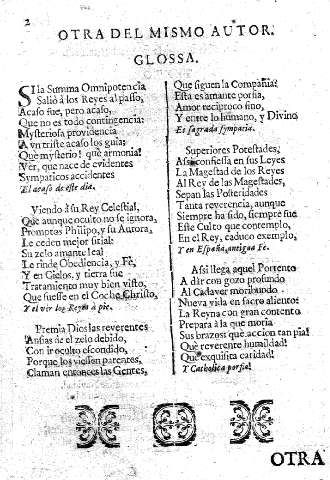 2
OTRA DEL MISMO AUTOR.
GLOSSA.
SI la Summa Omnipotencia
Saliò à los Reyes al passo,
Acaso fue, pero acaso,
Que no es todo contingencia:
Mysteriosa providencia
A vn triste acaso los guia:
Què mysterio! què armonia!
Ver, que nace de evidentes
Sympaticos accidentes
El acaso de este dia.
Viendo à su Rey Celestial,
Que aunque oculto no se ignora,
Promptos Philipo, y su Aurora,
Le ceden mejor sitial:
Su zelo amante leal
Le rinde Obediencia, y Fè,
Y en Cielos, y tierra fue
Tratamiento muy bien visto,
Que fuesse en el Coche Christo,
Y el vèr los Reyes à pie.
Premia Dios las reverentes
Ansias de el zelo debido,
Con ir oculto escondido,
Porque los viessen parentes,
Claman entonces las Gentes,
Que siguen la Compañia:
Esta es amante porfia,
Amor reciproco sino,
Y entre lo humano, y Divino
Es sagrada sympacia.
Superiores Potestades,
Assi confiessa en sus Leyes
La Magestad de los Reyes
Al Rey de las Magestades,
Sepan las Posteridades
Tanta reverencia, aunque
Siempre ha sido, siempre fue
Este Culto que contemplo,
En el Rey, caduco exemplo,
Y en España, antigua Fè.
Assi llega aquel Portento
A dàr con gozo profundo
Al Cadaver moribundo
Nueva vida en sacro aliento:
La Reyna con gran contento
Prepara à la que moria
Sus brazos: què accion tan pia!
Què reverente humildad!
Què exquisita caridad!
Y Catholica porfia!
OTRA